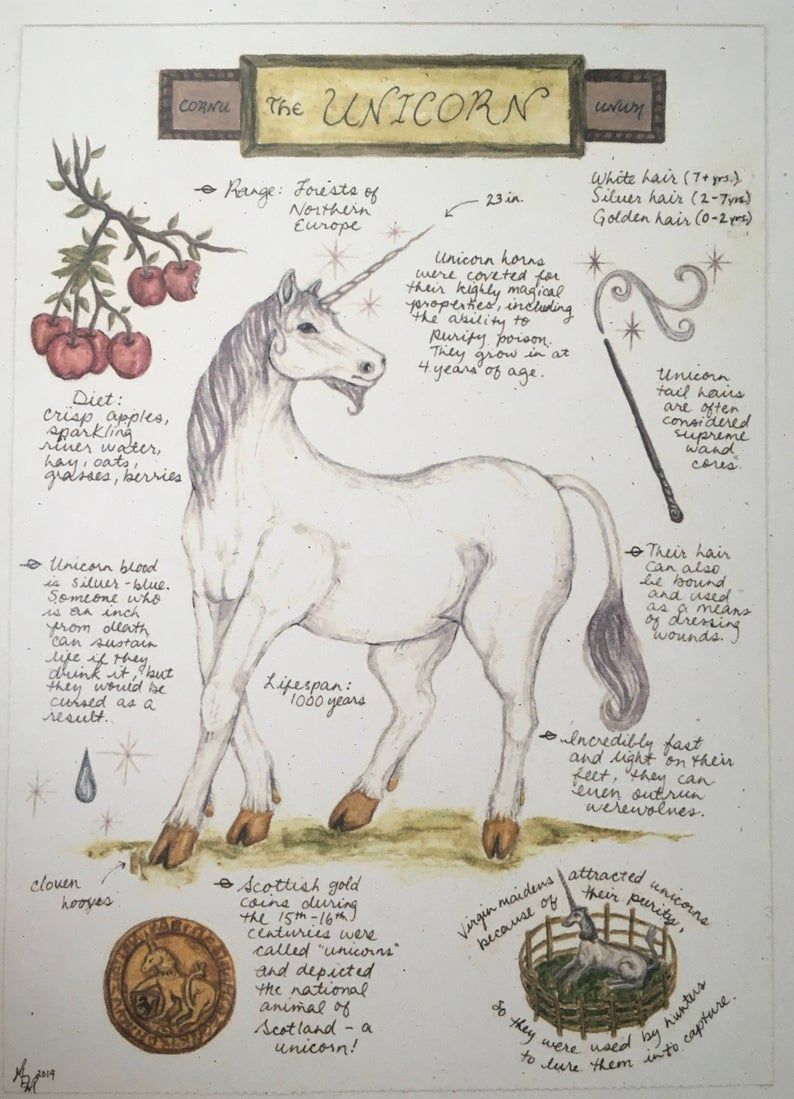 CORNU The UNICORN UNUM
Range: Forests of
Northern
Europe
23 in.
White hair (7+ yrs.)
Silver hair (2-7yrs)
Golden hair (0-2 yrs)
Unicorn horns
were coveted for
their highly magical
properties, including
the ability to
purify poison.
They grow in at
4 years of age.
Unicorn
tail hairs
are often
considered
supreme
wand
cores.
Diet:
crisp apples,
sparkling
river water,
hay, oats,
grasses, berries
Unicorn blood
is silver-blue.
Someone who
is an inch
from death
can sustain
life if they
drink it, but
they would be
cursed as a
result.
Their hair
can also
be bound
and used
as a means
of dressing
wounds.
Lifespan:
1000 years
Incredibly fast
and light on their
feet, they can
even outrun
werewolves.
cloven
hooves
Scottish gold
coins during
the 15th-16th
centuries were
called "unicorns"
and depicted
the national
animal of
Scotland - a
unicorn!
Virgin maidens attracted unicorns
because of their purity,
so they were used by hunters
to lure them into capture.
2019